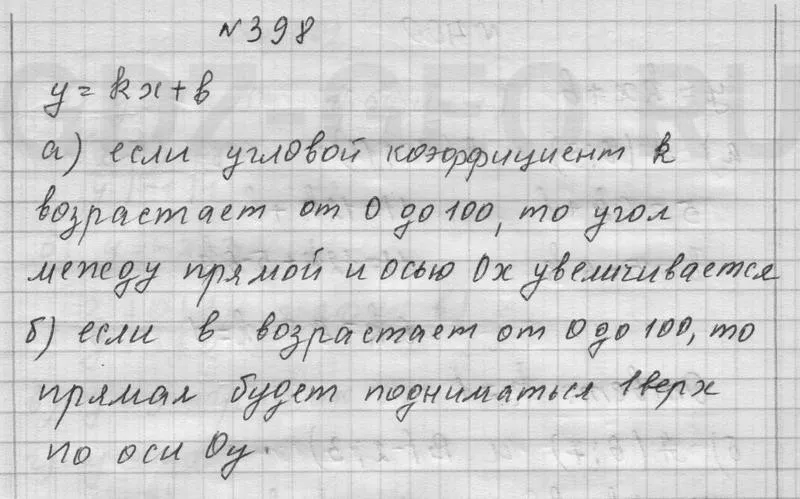 №398
y = kx + b
а) если угловой коэффициент k
возрастает от 0 до 100, то угол
между прямой и осью Ox увеличивается
б) если b возрастает от 0 до 100, то
прямая будет подниматься вверх
по оси Oy.